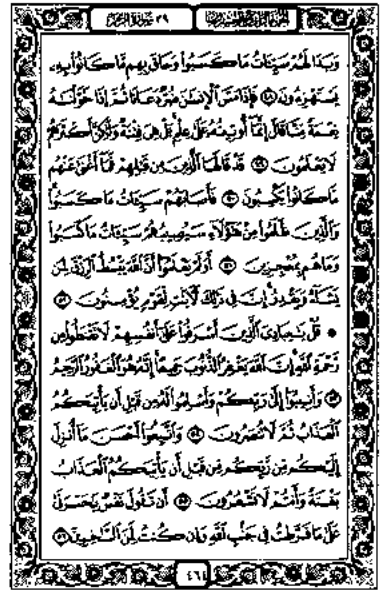 الجزء الرابع والعشرون ٣٩ سورة الزمر
وَبَدَا لَهُمْ سَيِّـَٔاتُ مَا كَسَبُوا۟ وَحَاقَ بِهِم مَّا كَانُوا۟ بِهِۦ
يَسْتَهْزِءُونَ ٤٨ فَإِذَا مَسَّ ٱلْإِنسَٰنَ ضُرٌّ دَعَانَا ثُمَّ إِذَا خَوَّلْنَٰهُ
نِعْمَةً مِّنَّا قَالَ إِنَّمَآ أُوتِيتُهُۥ عَلَىٰ عِلْمٍۭ بَلْ هِىَ فِتْنَةٌ وَلَٰكِنَّ أَكْثَرَهُمْ
لَا يَعْلَمُونَ ٤٩ قَدْ قَالَهَا ٱلَّذِينَ مِن قَبْلِهِمْ فَمَآ أَغْنَىٰ عَنْهُم
مَّا كَانُوا۟ يَكْسِبُونَ ٥٠ فَأَصَابَهُمْ سَيِّـَٔاتُ مَا كَسَبُوا۟
وَٱلَّذِينَ ظَلَمُوا۟ مِنْ هَٰٓؤُلَآءِ سَيُصِيبُهُمْ سَيِّـَٔاتُ مَا كَسَبُوا۟
وَمَا هُم بِمُعْجِزِينَ ٥١ أَوَلَمْ يَعْلَمُوٓا۟ أَنَّ ٱللَّهَ يَبْسُطُ ٱلرِّزْقَ لِمَن
يَشَآءُ وَيَقْدِرُ إِنَّ فِى ذَٰلِكَ لَءَايَٰتٍ لِّقَوْمٍ يُؤْمِنُونَ ٥٢
۞ قُلْ يَٰعِبَادِىَ ٱلَّذِينَ أَسْرَفُوا۟ عَلَىٰٓ أَنفُسِهِمْ لَا تَقْنَطُوا۟ مِن
رَّحْمَةِ ٱللَّهِ إِنَّ ٱللَّهَ يَغْفِرُ ٱلذُّنُوبَ جَمِيعًا إِنَّهُۥ هُوَ ٱلْغَفُورُ ٱلرَّحِيمُ
٥٣ وَأَنِيبُوٓا۟ إِلَىٰ رَبِّكُمْ وَأَسْلِمُوا۟ لَهُۥ مِن قَبْلِ أَن يَأْتِيَكُمُ
ٱلْعَذَابُ ثُمَّ لَا تُنصَرُونَ ٥٤ وَٱتَّبِعُوٓا۟ أَحْسَنَ مَآ أُنزِلَ
إِلَيْكُم مِّن رَّبِّكُم مِّن قَبْلِ أَن يَأْتِيَكُمُ ٱلْعَذَابُ
بَغْتَةً وَأَنتُمْ لَا تَشْعُرُونَ ٥٥ أَن تَقُولَ نَفْسٌ يَٰحَسْرَتَىٰ
عَلَىٰ مَا فَرَّطتُ فِى جَنۢبِ ٱللَّهِ وَإِن كُنتُ لَمِنَ ٱلسَّٰخِرِينَ ٥٦
٤٦٤